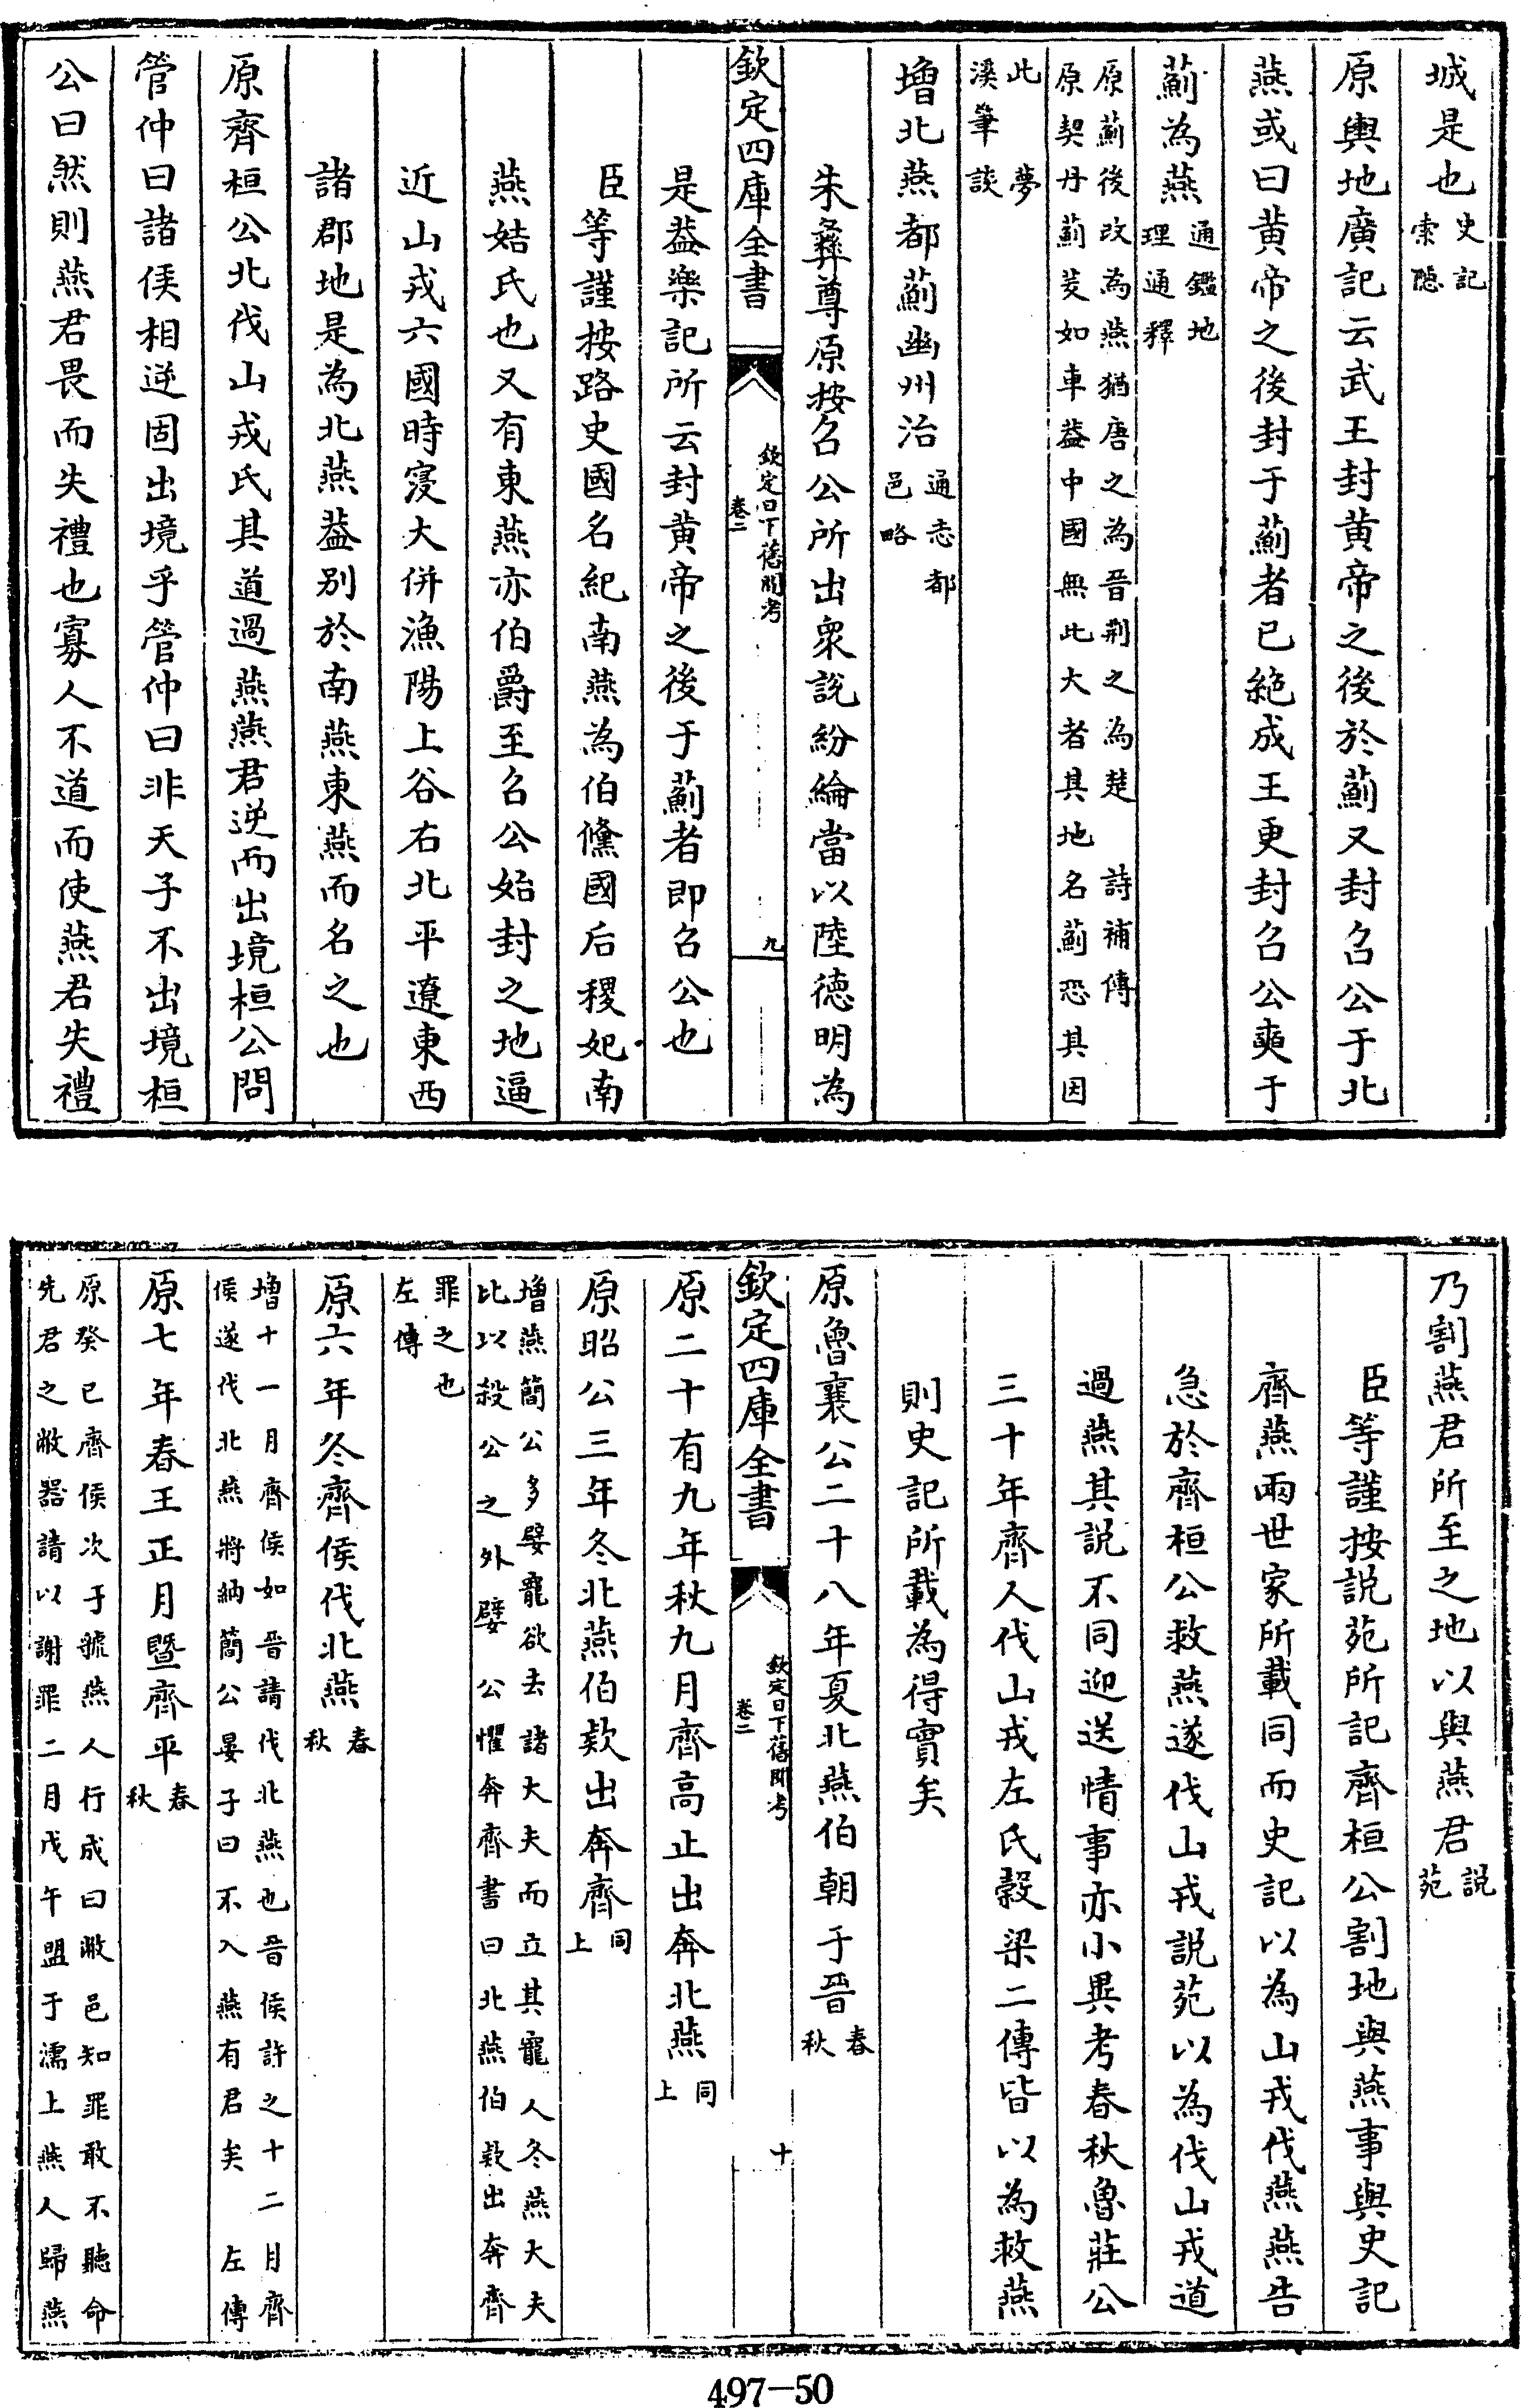 城是也史記索隱
原輿地廣記云武王封黃帝之後於薊又封召公于北
燕或曰黃帝之後封于薊者已絶成王更封召公奭于
薊為燕通鑑地理通釋
原薊後改為燕猶唐之為晉荆之為楚　詩補傳
原契丹薊茭如車葢中國無此大者其地名薊恐其因
此　夢
溪筆談
增北燕都薊幽州治通志都邑略
朱彝尊原按召公所出衆說紛綸當以陸德明為
欽定四庫全書
欽定日下舊聞考
卷二
九
是葢樂記所云封黃帝之後于薊者即召公也
臣等謹按路史國名紀南燕為伯鯈國后稷妃南
燕姞氏也又有東燕亦伯爵至召公始封之地逼
近山戎六國時寖大併漁陽上谷右北平遼東西
諸郡地是為北燕葢别於南燕東燕而名之也
原齊桓公北伐山戎氏其道過燕燕君逆而出境桓公問
管仲曰諸侯相逆固出境乎管仲曰非天子不出境桓
公曰然則燕君畏而失禮也寡人不道而使燕君失禮
乃割燕君所至之地以與燕君說苑
臣等謹按說苑所記齊桓公割地與燕事與史記
齊燕兩世家所載同而史記以為山戎伐燕燕告
急於齊桓公救燕遂伐山戎說苑以為伐山戎道
過燕其說不同迎送情事亦小異考春秋魯莊公
三十年齊人伐山戎左氏榖梁二傳皆以為救燕
則史記所載為得實矣
原魯襄公二十八年夏北燕伯朝于晉春秋
欽定四庫全書
欽定日下舊聞考
卷二
十
原二十有九年秋九月齊高止出奔北燕同上
原昭公三年冬北燕伯欵出奔齊同上
增燕簡公多嬖寵欲去諸大夫而立其寵人冬燕大夫
比以殺公之外嬖　公懼奔齊書曰北燕伯欵出奔齊
罪之也
左傳
原六年冬齊侯伐北燕春秋
增十一月齊侯如晉請伐北燕也晉侯許之十二月齊
侯遂伐北燕將納簡公晏子曰不入燕有君矣　左傳
原七年春王正月暨齊平春秋
原癸已齊侯次于虢燕人行成曰敝邑知罪敢不聽命
先君之敝器請以謝罪二月戊午盟于濡上燕人歸燕
497-50